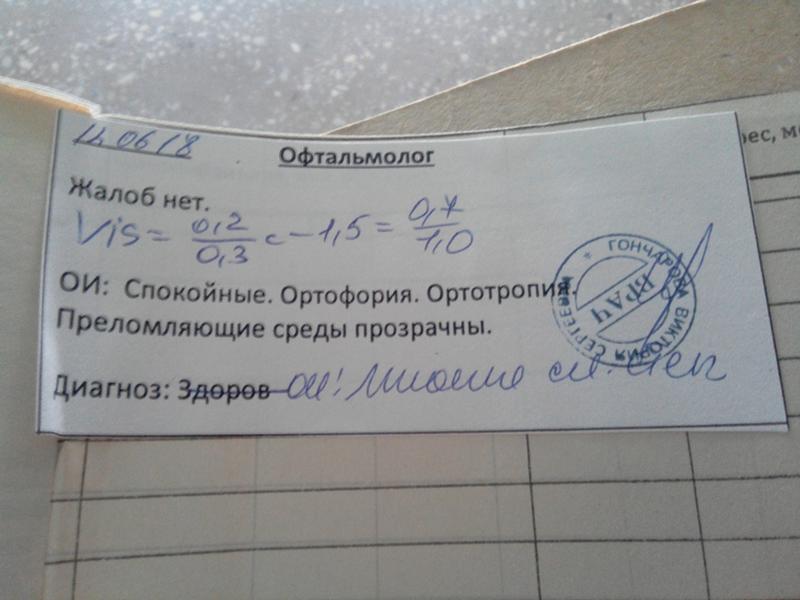 06 18
Офтальмолог
Жалоб нет.
Vis = 0,2/0,3 с -1,5 = 0,7/1,0
ОИ: Спокойные. Ортофория. Ортотропия.
Преломляющие среды прозрачны.
Диагноз: Здоров ОИ: Миопия сл. степ
ГОНЧАРОВА ВИКТОРИЯ СЕРГЕЕВНА
ВРАЧ